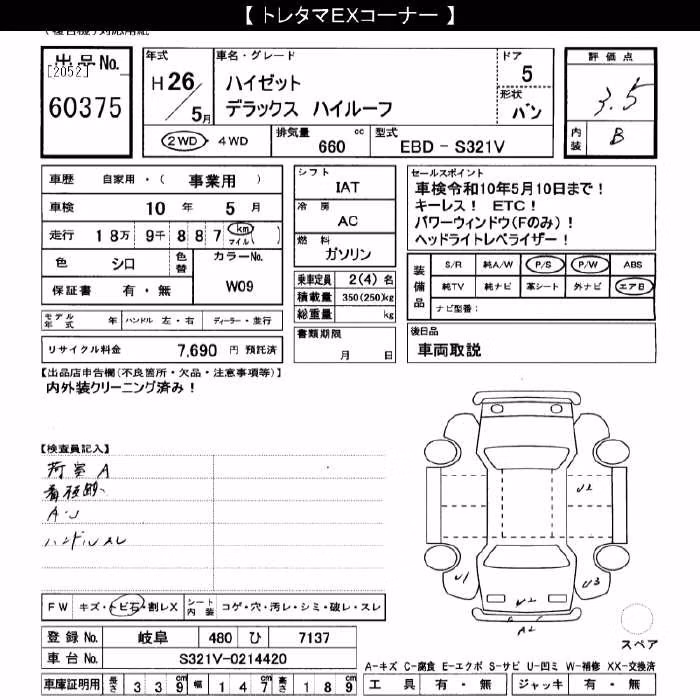 【 トレタマEXコーナー 】
出品No.
[2052]
60375
年式
H26/5月
車名・グレード
ハイゼット
デラックス ハイルーフ
ドア
5
形状
バン
評価点
3.5
内装
B
2WD・4WD
排気量 660 cc
型式 EBD - S321V
車歴 自家用・( 事業用 )
車検 10 年 5 月
走行 18万 9千 8 8 7 km マイル( )
色 シロ
色替
カラーNo.
W09
保証書 有・無
モデル年式 年
ハンドル 左・右
ディーラー・並行
リサイクル料金 7,690 円 預託済
シフト
IAT
冷房
AC
燃料
ガソリン
乗車定員 2(4) 名
積載量 350(250)kg
総重量 kg
書類期限
月 日
セールスポイント
車検令和10年5月10日まで!
キーレス! ETC!
パワーウィンドウ(Fのみ)!
ヘッドライトレベライザー!
装備品
S/R 純A/W P/S P/W ABS
純TV 純ナビ 革シート 外ナビ エアB
ナビ型番:
後日品
車両取説
【出品店申告欄(不良箇所・欠品・注意事項等)】
内外装クリーニング済み!
【検査員記入】
荷室A
A・U
ハンドルスレ
U2
U1
U3
A2
FW キズ・トビ石・割レX
シート内装 コゲ・穴・汚レ・シミ・破レ・スレ
登録No. 岐阜 480 ひ 7137
車台No. S321V-0214420
車庫証明用 長さ 339 幅 147 高さ 189
スペア
A-キズ C-腐食 E-エクボ S-サビ U-凹ミ W-補修 XX-交換済
工具 有・無 ジャッキ 有・無